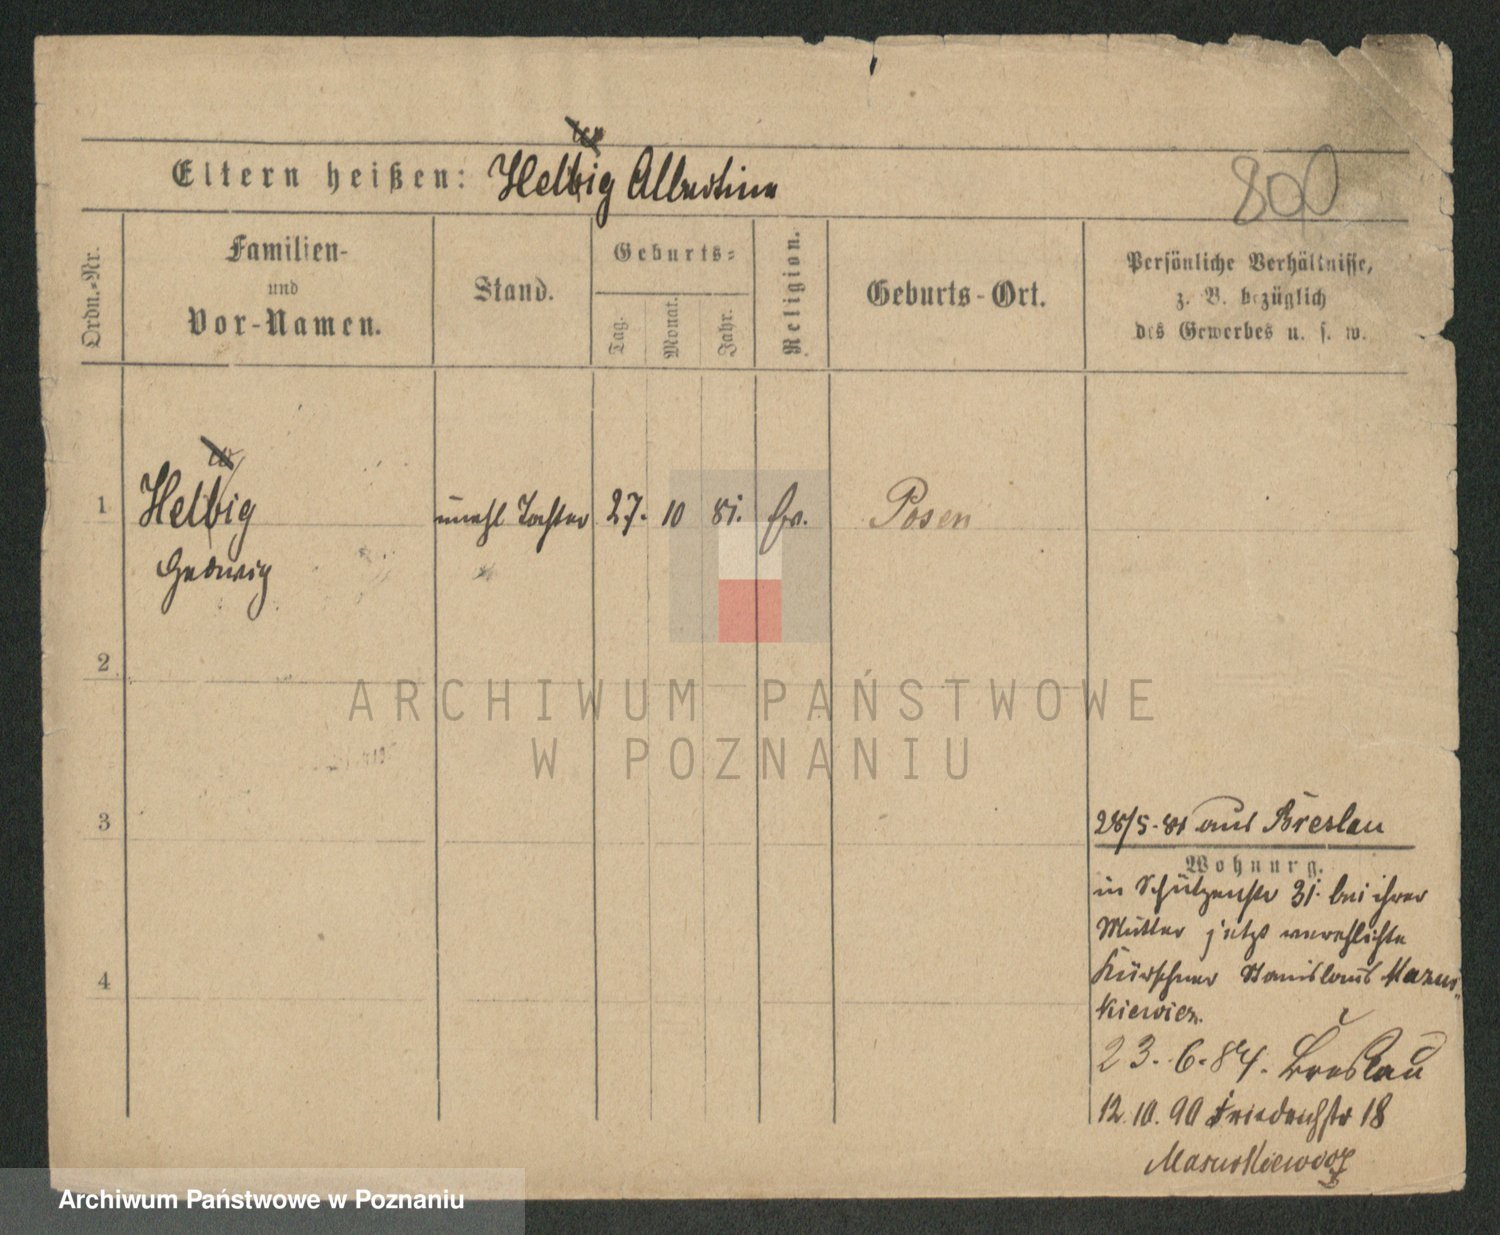 Eltern heißen: Helbig Albertine
800
Ordn.-Nr.
Familien-
und
Vor-Namen.
Stand.
Geburts-
Tag.
Monat.
Jahr.
Religion.
Geburts-Ort.
Persönliche Verhältnisse,
z. B. bezüglich
des Gewerbes u. s. w.
1 Helbig unehl Tochter 27. 10 81. ev. Posen
Hedwig
2
ARCHIWUM PAŃSTWOWE
W POZNANIU
3
28/5. 81 aus Breslau
Wohnung.
in Schützenstr 31. bei ihrer
Mutter jetzt verehlichte
4 Kürschner Stanislaus Mazur-
kiewicz.
23. 6. 84. Breslau
12. 10. 90 Friedrichstr 18
Masurkiewicz
Archiwum Państwowe w Poznaniu